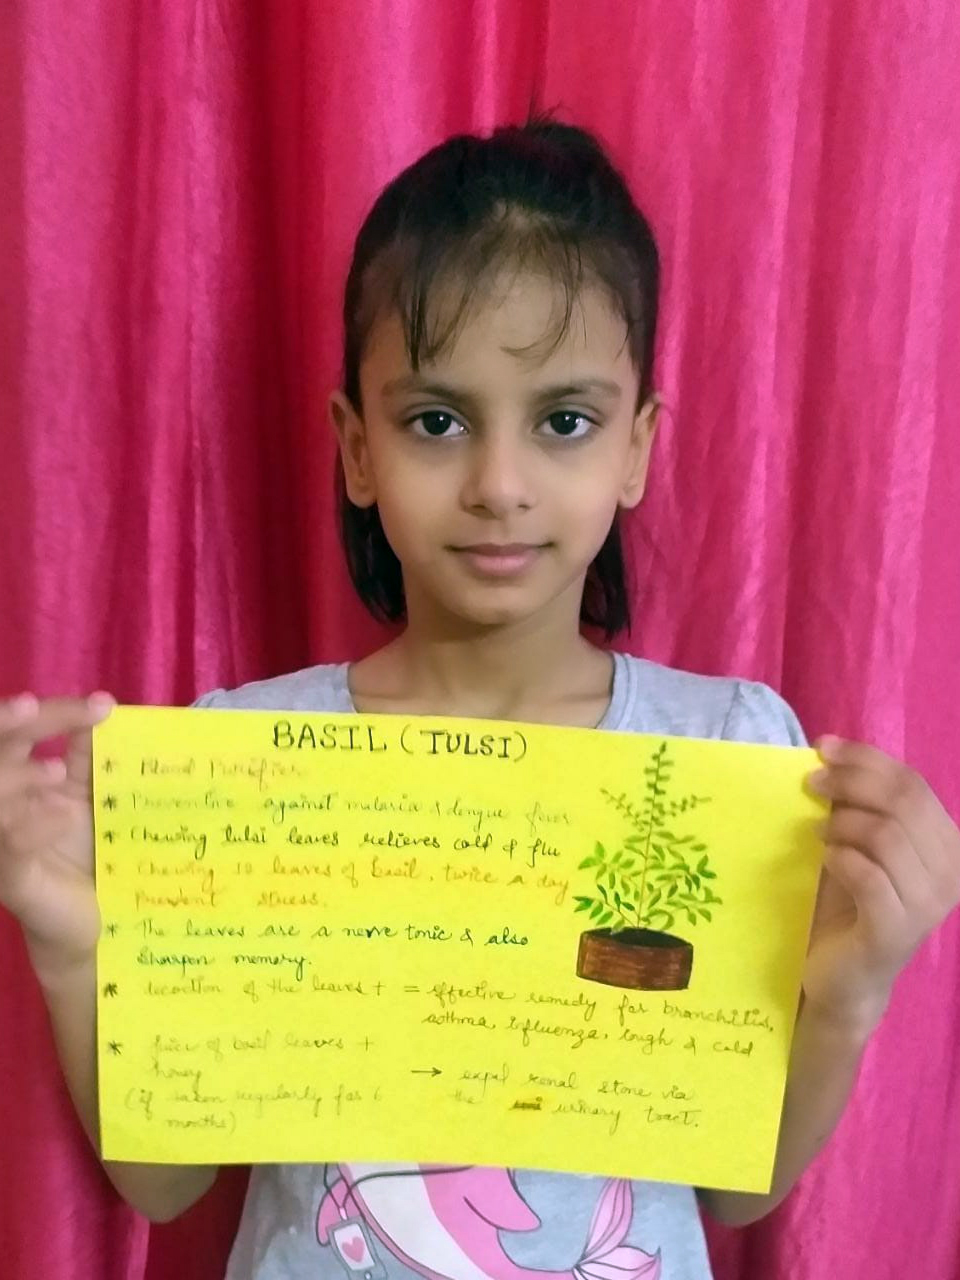 BASIL (TULSI)
* Blood Purifier
* Preventive against malaria & dengue fever
* Chewing tulsi leaves relieves cold & flu
* Chewing 10 leaves of basil, twice a day
prevent stress.
* The leaves are a nerve tonic & also
sharpen memory.
* decoction of the leaves + = effective remedy for bronchitis,
asthma, influenza, cough & cold
* juice of basil leaves +
honey → expel renal stone via
(if taken regularly for 6 the urinary tract.
months)